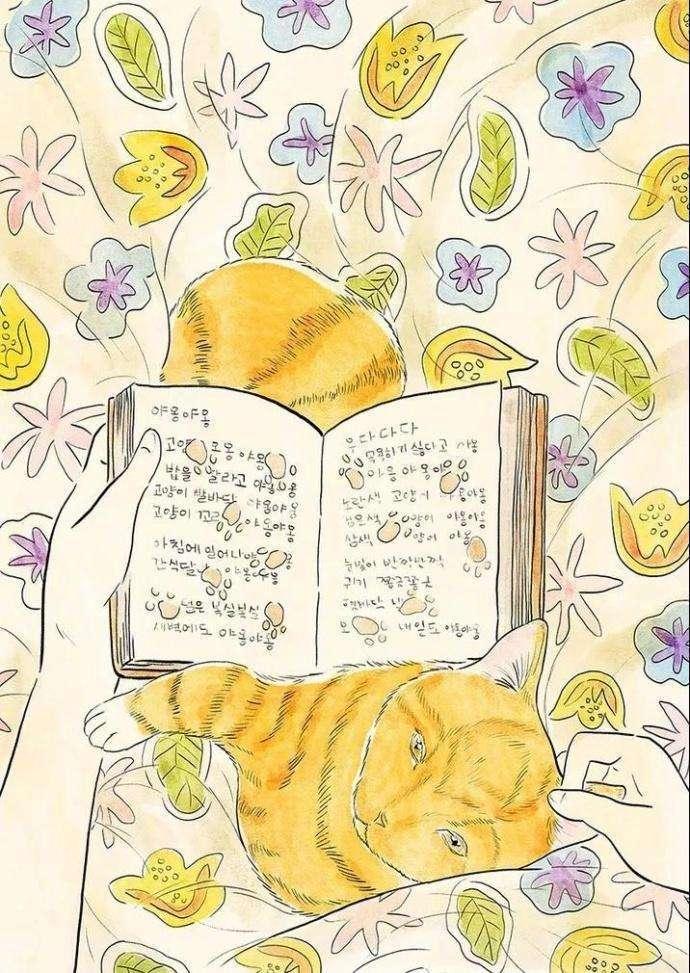 야옹야옹
고양 로옹 야옹 옹
밥을 달라고 야옹야옹
고양이 발바닥 야옹야옹
고양이 꼬리 야옹야옹
아침에 일어나 야옹 옹
간식달 야옹야옹
넘은 복실복실
새벽에도 야옹야옹
우다다다
목욕하기 싫다고 야옹
야옹야옹
노란색 고양이 야옹야옹
검은색 양이 야옹야옹
삼색 양이 야옹
눈빛이 반짝반짝
귀가 쫑긋쫑긋
내일도 야옹야옹